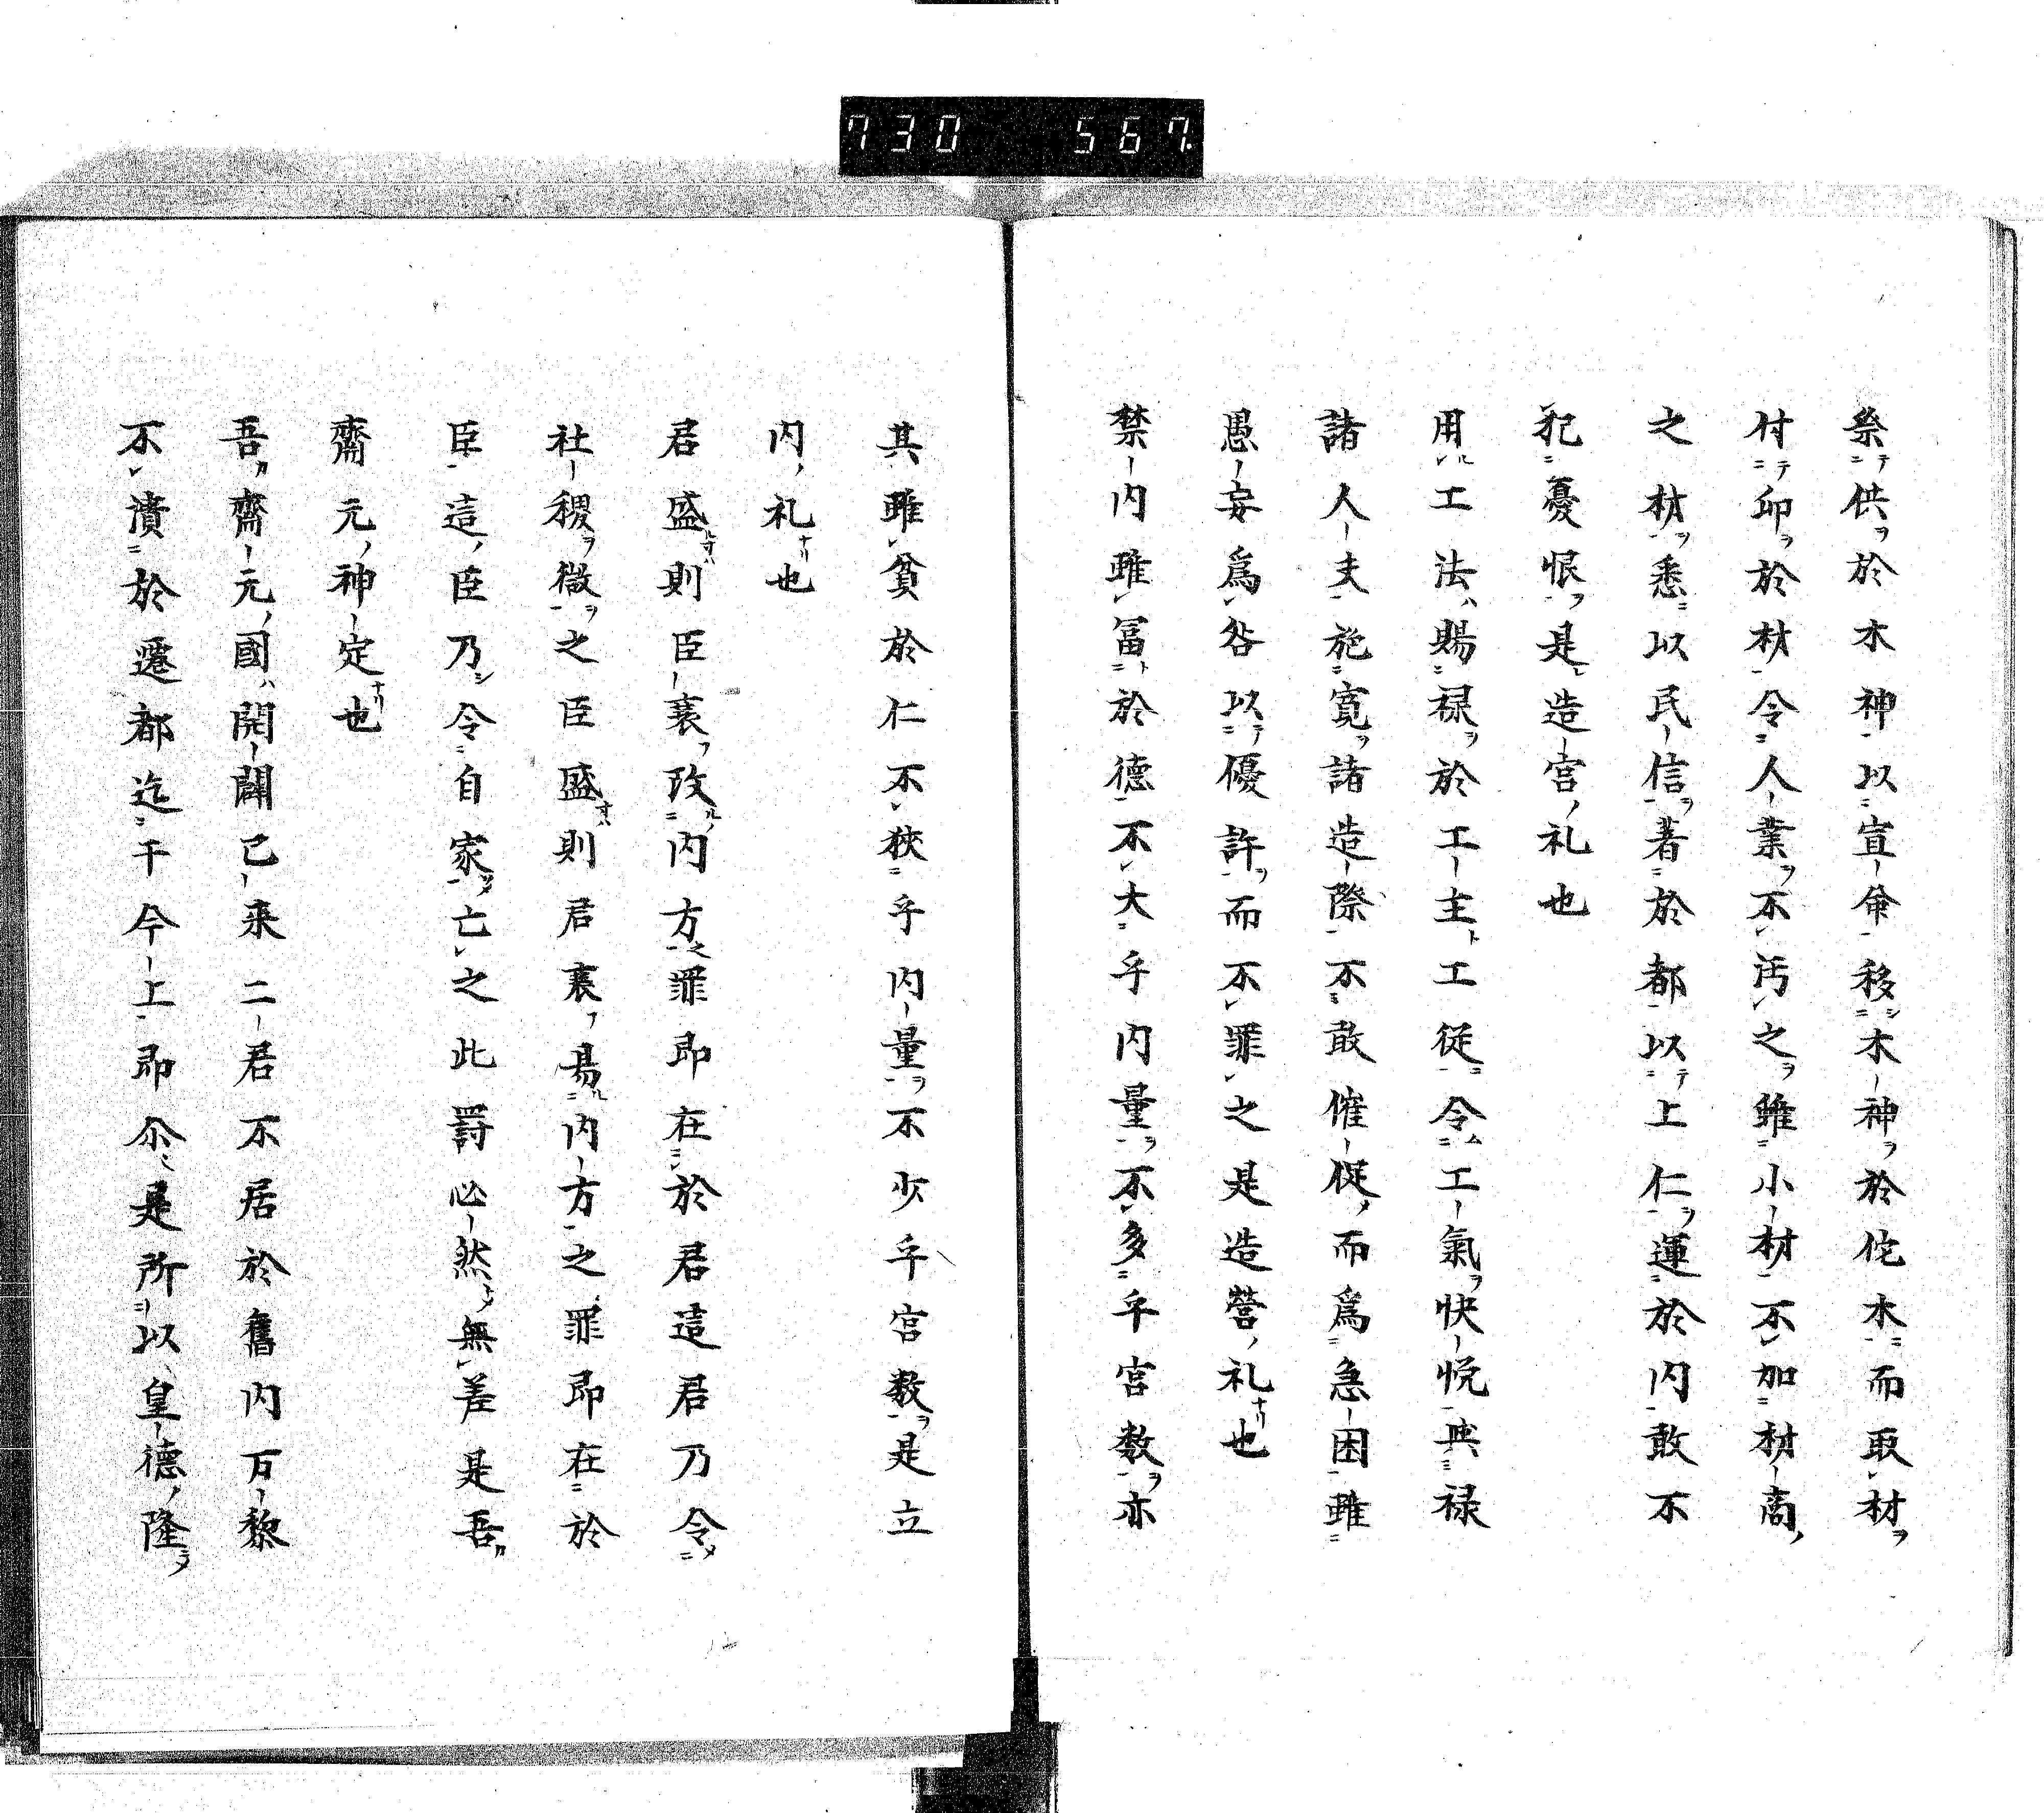 730 567
祭供於木神以宣命移木神於佗木而取材
付卯於材令人業不汚之雖小材不加材商
之材悉以民信著於都以上仁運於内敢不
犯憂恨是造宮礼也
用工法賜禄於工主工従令工氣快悦與禄
諸人夫施寛諸造際不敢催促而爲急困雖
愚妄爲咎以優許而不罪之是造營礼也
禁内雖冨於德不大乎内量不多乎宮数亦
其雖貧於仁不狹乎内量不少乎宮数是立
内礼也
君盛則臣襄改内方罪即在於君這君乃令
社稷微之臣盛則君襄易内方之罪即在於
臣這臣乃令自家亡之此罸必然無差是吾
齋元神定也
吾齋元國開闢已来二君不居於舊内万黎
不潰於遷都迄干今上即尒是所以皇德隆